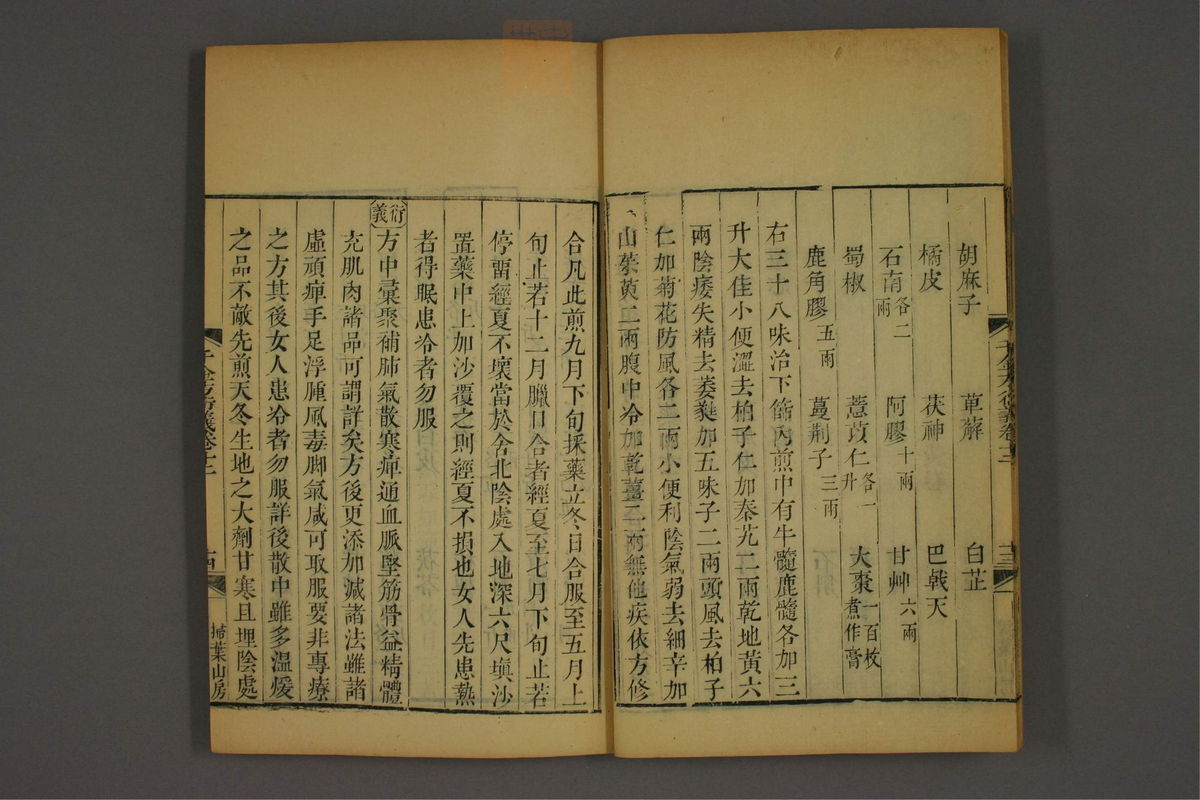 胡麻子 萆薢 白芷
橘皮 茯神 巴戟天
石南各二兩 阿膠十兩 甘艸六兩
蜀椒 薏苡仁各一升 大棗一百枚煮作膏
鹿角膠五兩 蔓荆子三兩
右三十八味治下篩內煎中有牛髓鹿髓各加三
升大佳小便澀去柏子仁加秦艽二兩乾地黃六
兩陰痿失精去萎蕤加五味子二兩頭風去柏子
仁加菊花防風各二兩小便利陰氣弱去細辛加
山茱萸二兩腹中冷加乾薑二兩無他疾依方修
合凡此煎九月下旬採藥立冬日合服至五月上
旬止若十二月臘日合者經夏至七月下旬止若
停畱經夏不壞當於舍北陰處入地深六尺塡沙
置藥中上加沙覆之則經夏不損也女人先患熱
者得眠患冷者勿服
衍義 方中彙聚補肺氣散寒痺通血脈堅筋骨益精髓
充肌肉諸品可謂詳矣方後更添加減諸法雖諸
虛頑痺手足浮腫風毒脚氣咸可取服要非專療
之方其後女人患冷者勿服詳後散中雖多溫煖
之品不敵先煎天冬生地之大劑甘寒且埋陰處
千金方衍義卷十二 十四
掃葉山房